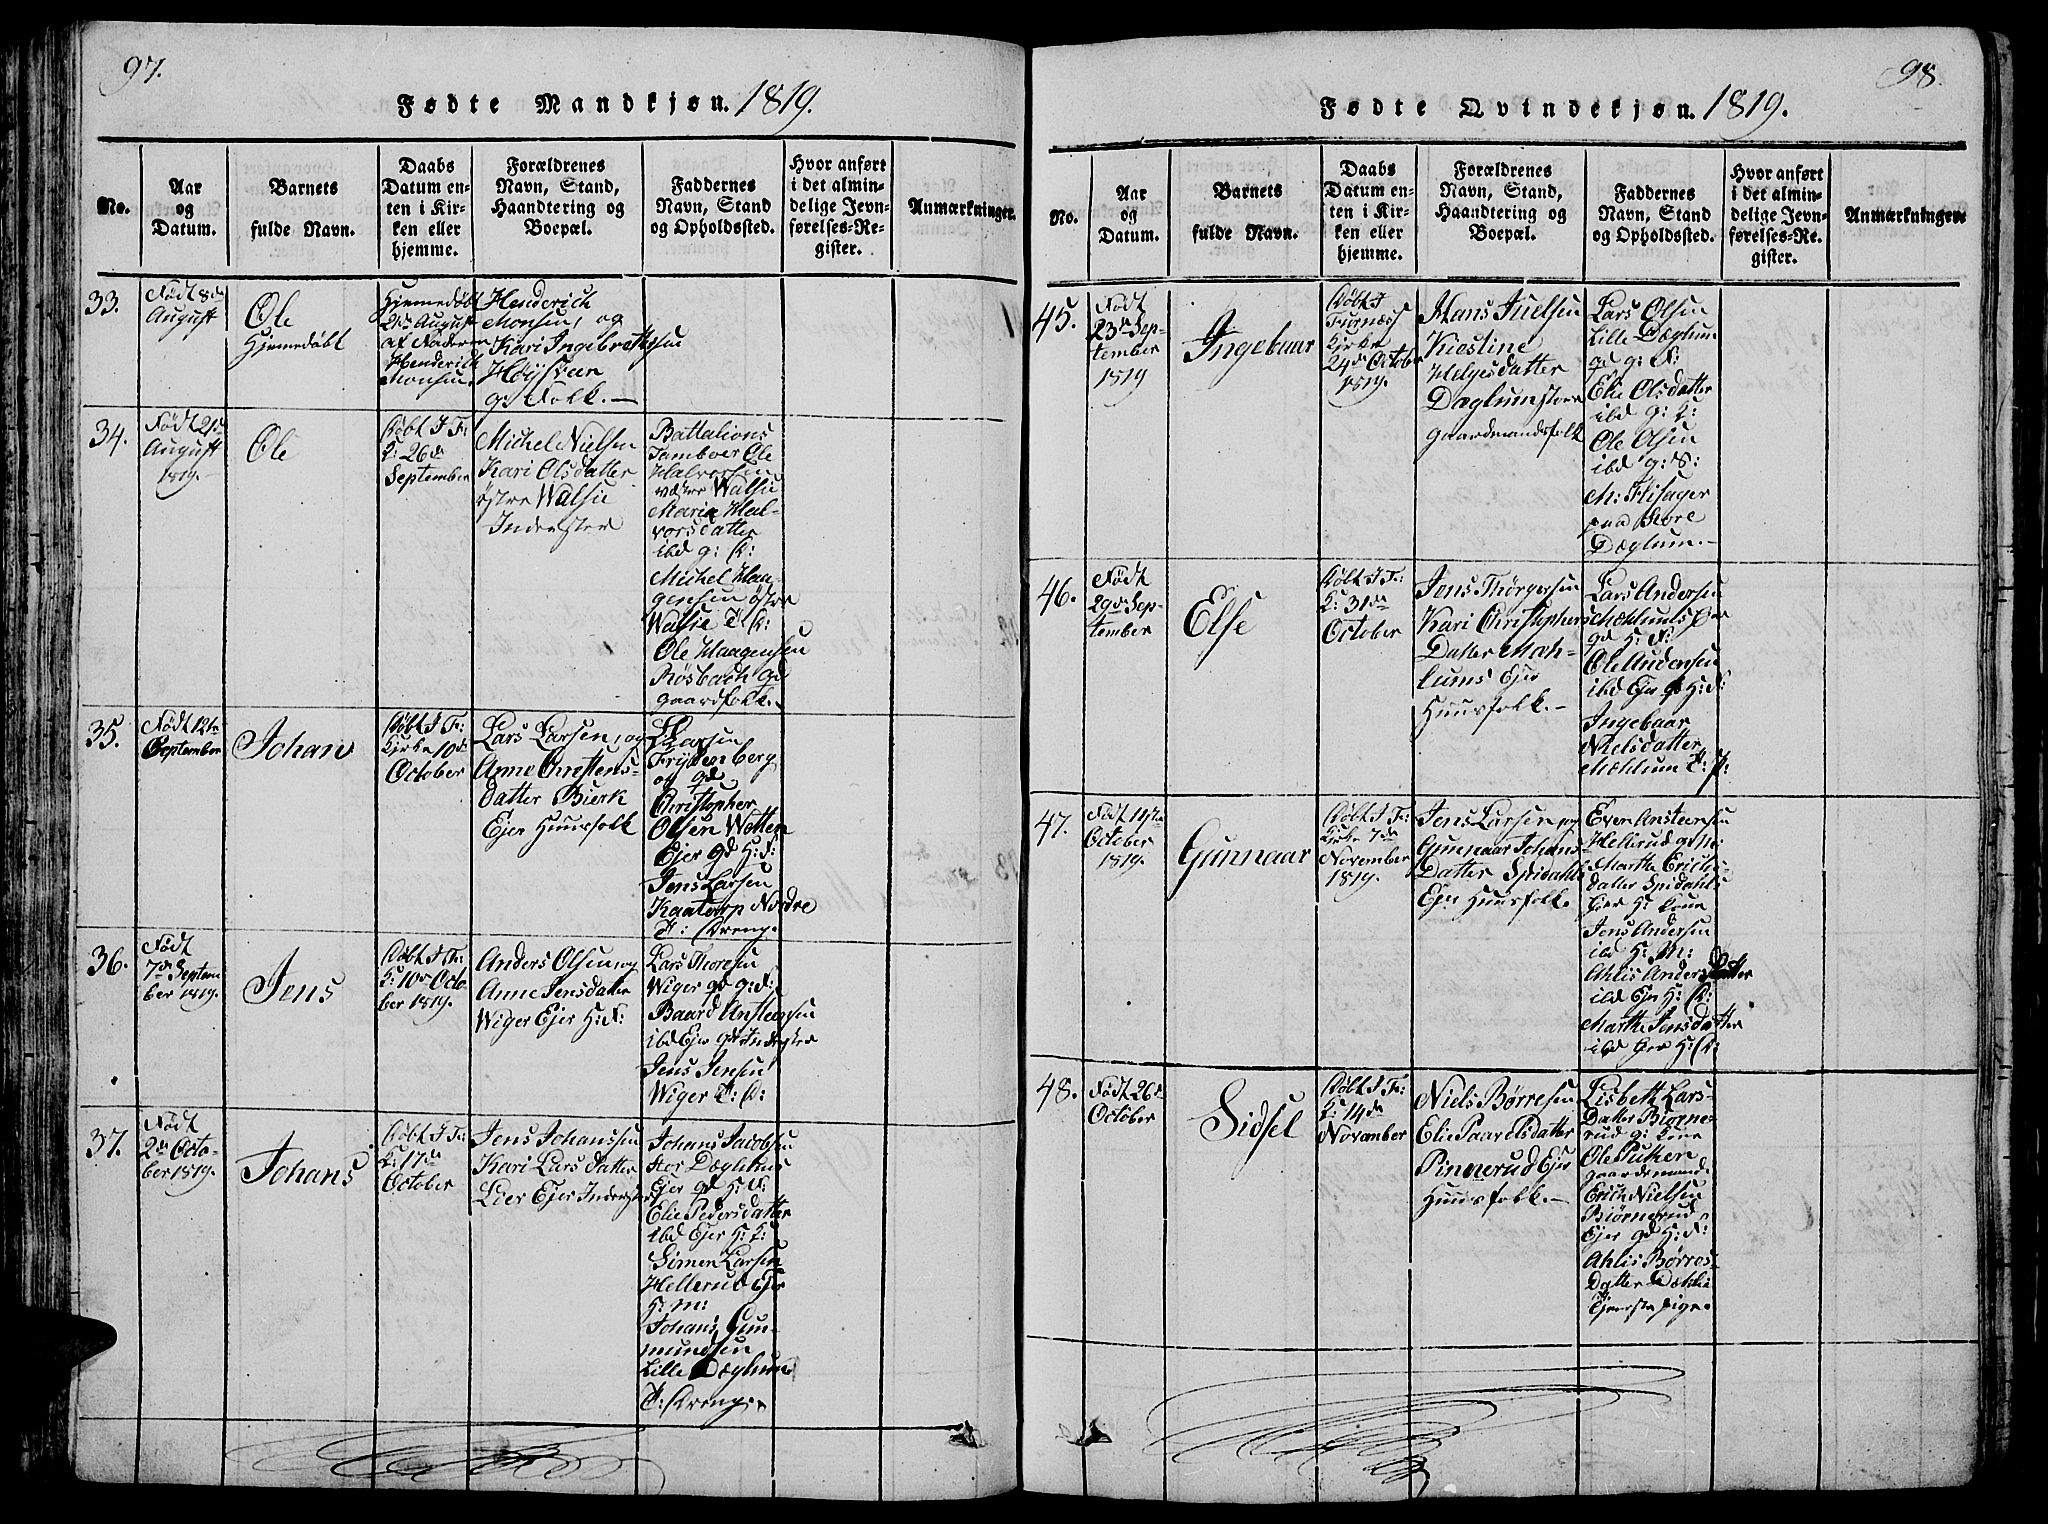 97.
Fødte Mandkjøn. 1819.
No.
Aar
og
Datum.
Barnets
fulde Navn.
Daabs
Datum en-
ten i Kir-
ken eller
hjemme.
Forældrenes
Navn, Stand,
Haandtering og
Boepæl.
Faddernes
Navn, Stand
og Opholdssted.
Hvor anført
i det almin-
delige Jevn-
førelses-Re-
gister.
Anmærkninger.
33.
Født 8de
August
Ole
Hjemedøbt
Hjemedøbt
21de August
af Faderen
Henderich
Monsen.
Henderich
Monsen, og
Kari Ingebretsen
Høysveen
g: Folk.
34.
Født 21de
August
1819.
Ole
Døbt I F:
K: 26de
September
Michel Nielsen
Kari Olsdatter
østre Walsie
Inderster
Battalions
Tambour Ole
Halversen
væstre Walsie
Maria Hal-
vorsdatter
ibd g: K:
Michel Haa-
gensen østre
Walsie T: K:
Ole Haagensen
Røsbach gd
gaardfolk.
35.
Født 12te
September
Johan
Døbt I Fr:
Kirke 10de
October
Lars Larsen, og
Anne Christens-
datter Bierk
Ejer Huusfolk
Larsen
Frydenberg
og gd
Christopher
Olsen Wetten
Ejer gd H: F:
Jens Larsen
Kaatorp Nordre
T: Dreng.
36.
Født
7de Septem
ber 1819.
Jens
Døbt I Fr:
K: 10de Octo
ber 1819.
Anders Olsen, og
Anne Jensdatter
Wiger Ejer H: F:
Lars Thoresen
Wiger gd g: F:
Baard Ansteensen
ibd Ejer gd Inderster
Jens Jensen
Wiger T: D:
37.
Født
2de Octo-
ber 1819.
Johans
Døbt I Fr:
K: 17de
October
Jens Johanssen
Kari Larsdatter
Lier Ejer Inderster
Johans Jacobsen
stor Dæglehus
Ejer gd H: F:
Elie Pedersdatter
ibd Ejer H: K:
Simen Larsen
Hellerud Ejer
H: M:
Johans Gun-
mundsen
Lille Dæglum
T: Dreng.
98.
Fødte Qvindekjøn. 1819.
No.
Aar
og
Datum.
Barnets
fulde Navn.
Daabs
Datum en-
ten i Kir-
ken eller
hjemme.
Forældrenes
Navn, Stand,
Haandtering og
Boepæl.
Faddernes
Navn, Stand
og Opholdssted.
Hvor anført
i det almin-
delige Jevn-
førelses-Re-
gister.
Anmærkninger.
45.
Født
23de Sep-
tember
1819
Ingebaar
Døbt I
Furnæss
Kirke
24de October
1819.
Hans Juelsen
Kiestine
Helgesdatter
Dæglum store
gaardmandsfolk
Lars Olsen
Lille Dæglum
gd g: F:
Elie Olsdatter
ibd g: K:
Ole Olsen
ibd g: S:
M: Flisager
paa Store
Dæglum.
46.
Født
29de Sep-
tember
Else
Døbt I Fr:
K: 31de
October
Jens Thørgersen
Kari Christophers
Datter Mæh-
lums Ejer
Huusfolk.
Lars Andersen
Mæhlums Ejer
gd H: F:
Ole Andersen
ibd Ejer gd H: F:
Ingebaar
Nielsdatter
Mæhlum T: P:
47.
Født 11te
October
1819.
Gunnaar
Døbt I Fr:
Kirke 7de
November
1819.
Jens Larsen, og
Gunnaar Johans-
Datter Spidahls
Ejer Huusfolk.
Even Ansteensen
Hellerud g: M:
Marthe Erichs
datter Spidahls
Ejer H: kone
Jens Andersen
ibd H: M:
Ahlis Andersdatter
ibd Ejer H: K:
Marthe Jensdatter
ibd Ejer H: K:
48.
Født 26de
October
Sidsel
Døbt I Fr:
K: 14de
November
Niels Børresen
Elie Paavelsdatter
Pinnerud Ejer
Huusfolk.
Lisbeth Lars-
Datter Biørne-
rud g: kone
Ole Putken
gaardemand
Erich Nielsen
Biørnerud
Ejer gd H: F:
Ahlis Børres-
Datter Dæhli
tieneste pige.